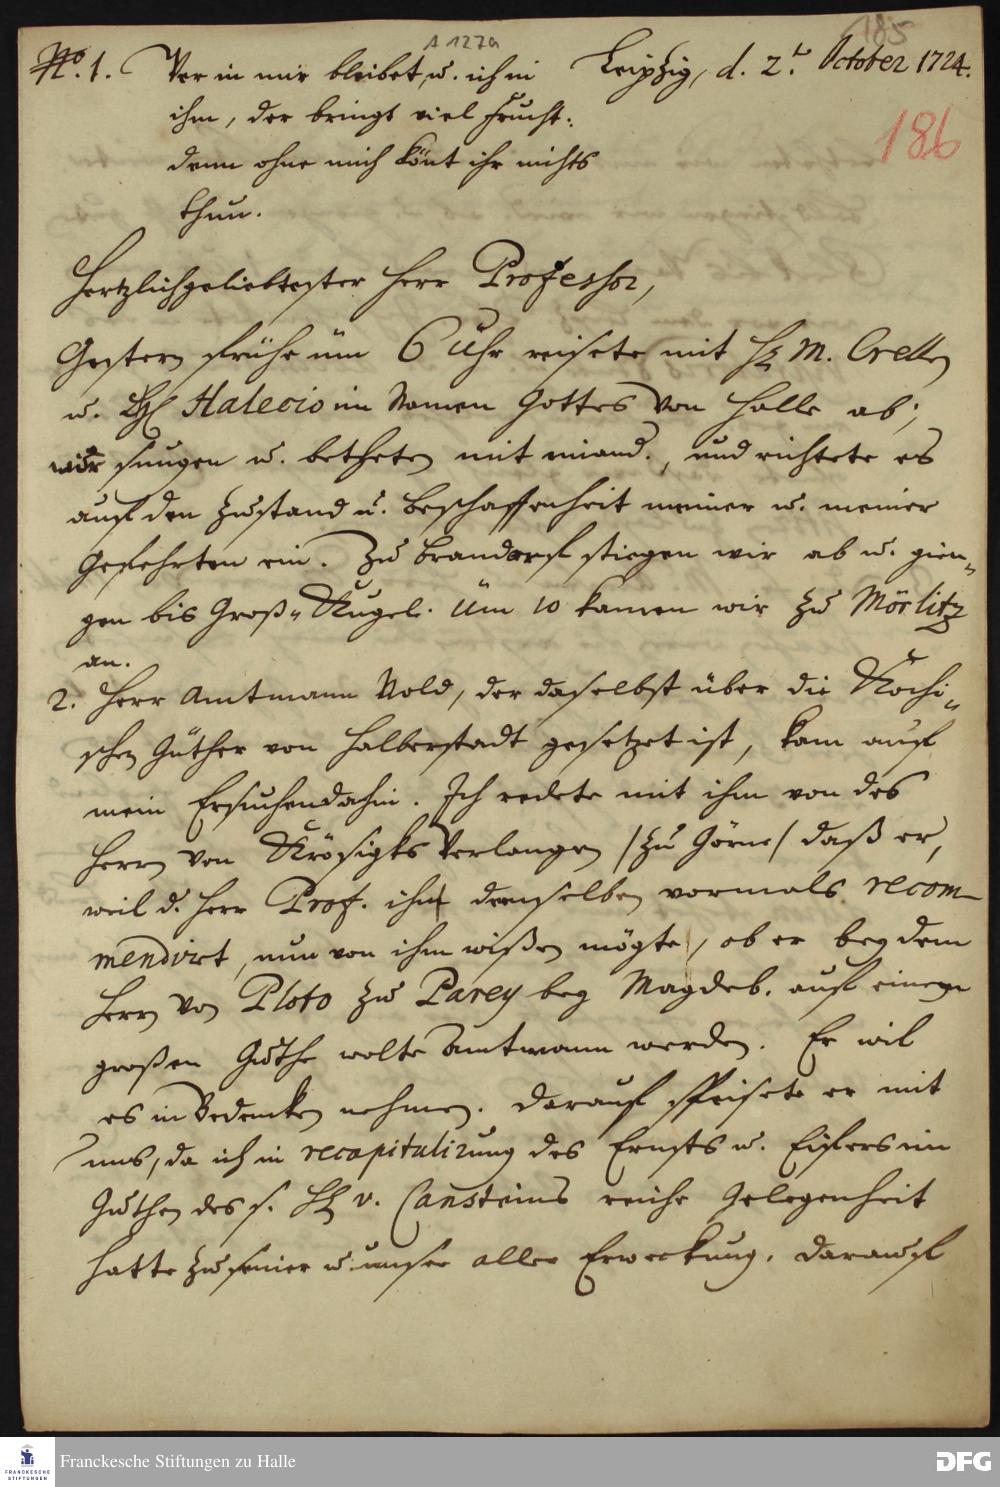 A 127a
185
N.° 1. Wer in mir bleibet, u. ich in Leipzig, d. 2.t October 1724.
186
ihm, der bringt viel Frucht:
denn ohne mich könt ihr nichts
thun.
Hertzlichgeliebtester Herr Professor,
Gestern frühe üm 6 Uhr reisete mit H. M. Crellen
u. H. Halecio im Namen Gottes von Halle ab;
wir sungen u. betheten mit einand., und richtete es
auf den Zustand u. Beschaffenheit meiner u. meiner
Gefehrten ein. Zu Brandorf stiegen wir ab u. gien„
gen bis Groß„Kugel. Üm 10 kamen wir zu Mörlitz
an.
2. Herr Amtmann Nold, der daselbst über die Kochi„
schen Güther von Halberstadt gesetzet ist, kam auf
mein Ersuchen dahin. Ich redete mit ihm von des
Herrn von Krösigks Verlangen /zu Görne/ daß er,
weil d. Herr Prof. ihn demselben vormals recom„
mendirt, nun von ihm wißen mögte, ob er bey dem
Herrn von Ploto zu Parey bey Magdeb. auf einem
großen Guthe wolte Amtmann werden. Er wil
es in Bedencken nehmen. Darauf speisete er mit
uns, da ich in recapitulirung des Ernsts u. Eifers im
Guthen des s. H. v. Cansteins reiche Gelegenheit
hatte zu seiner u. unser aller Erweckung. Darauf
Franckesche Stiftungen zu Halle
FRANCKESCHE
STIFTUNGEN
DFG